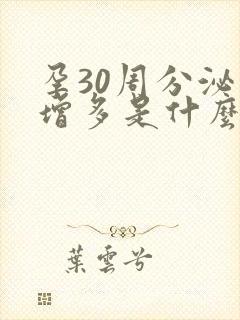 孕30周分泌
增多是什麼
葉雲兮